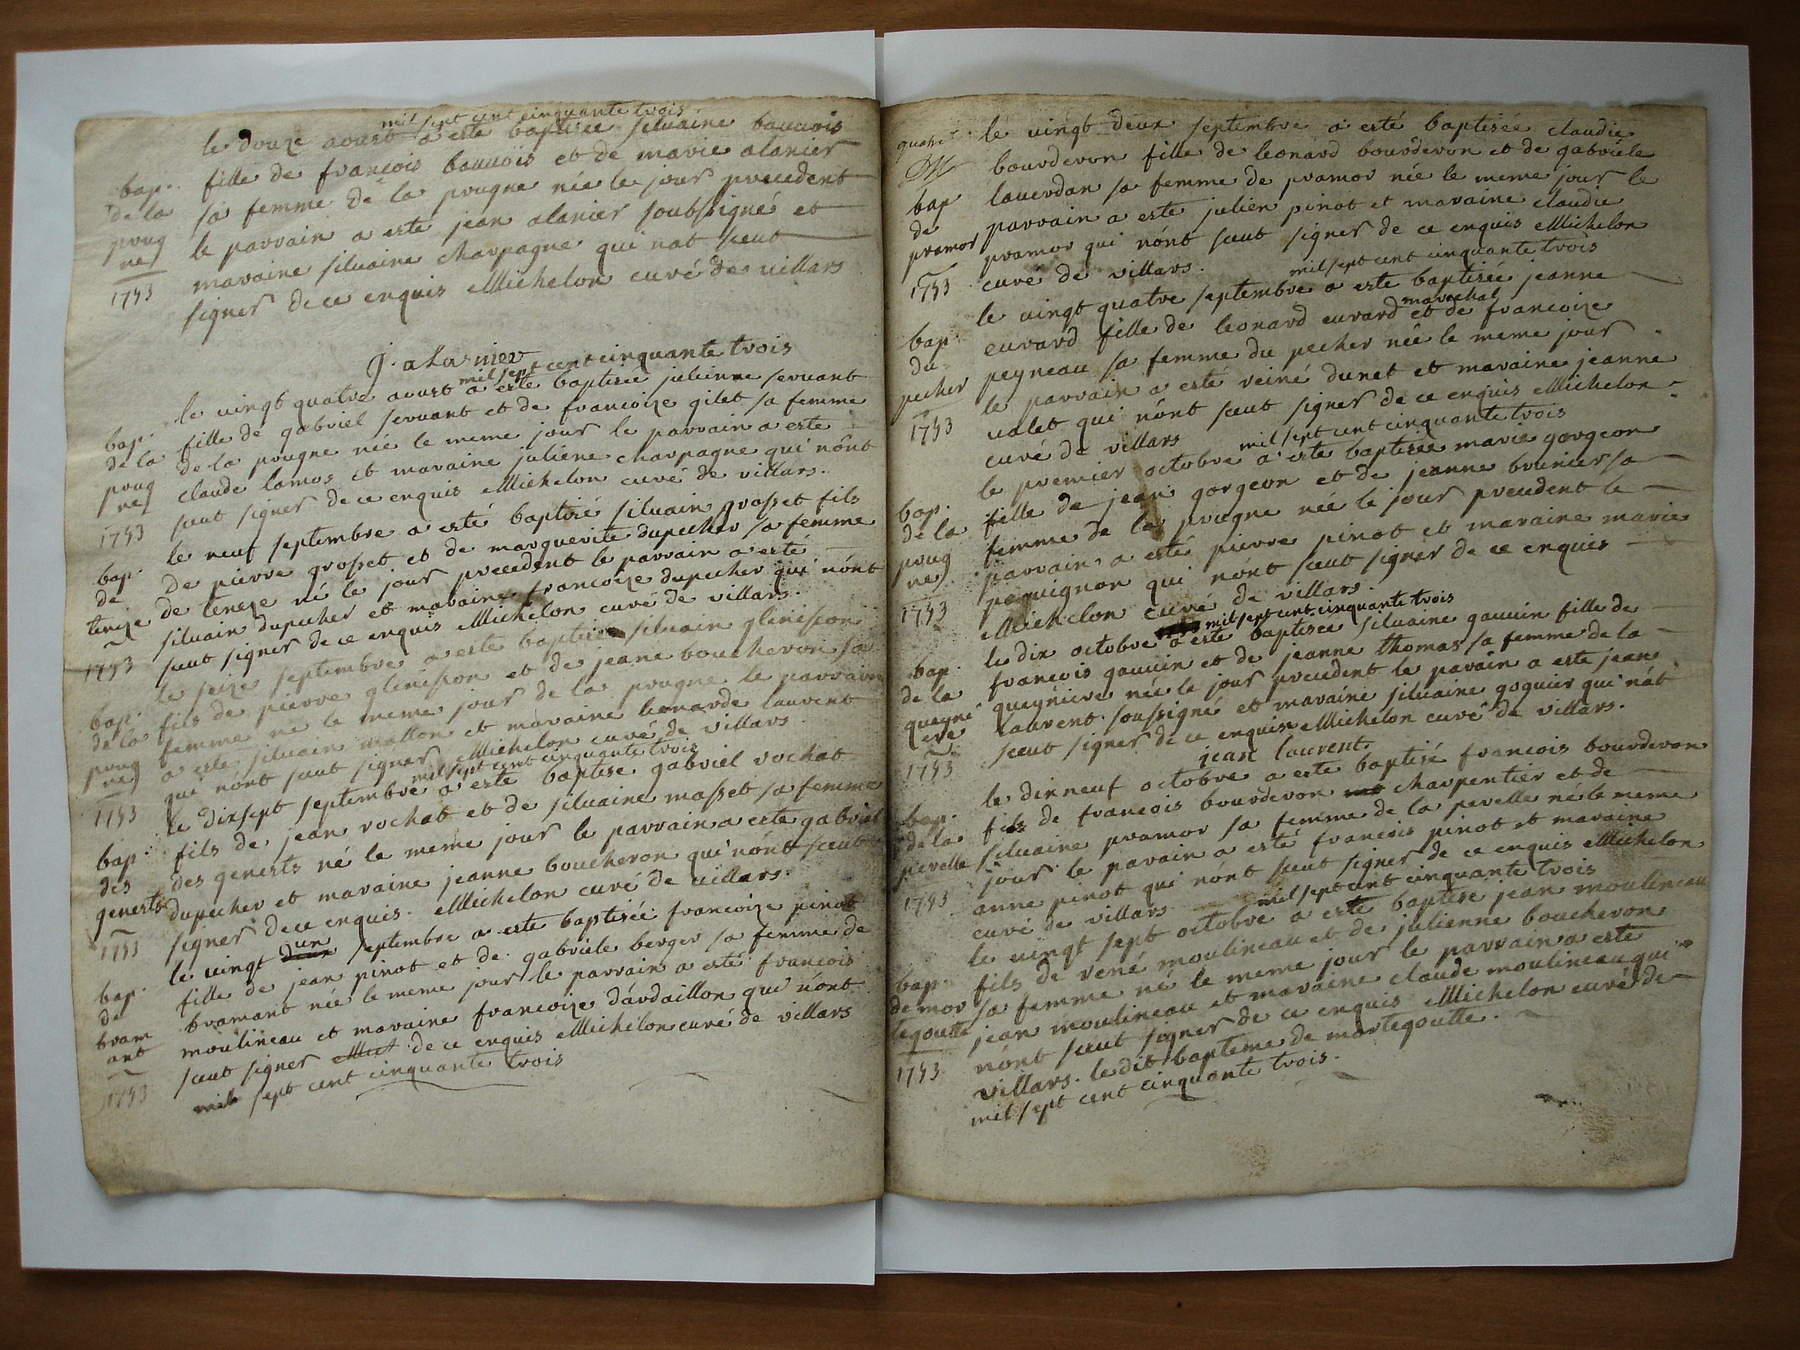 mil sept cent cinquante trois
le douze aoust a esté baptisée silvaine bauvois
bap. fille de françois bauvois et de marie alanier
de la sa femme de la prugne née le jour precedent
proug le parrain a esté jean alanier soubsigné et
ne maraine silvaine charpagne qui nat sceut
1753 signer de ce enquis Michelon curé de villars
J. alasnier
mil sept cent cinquante trois
le vingt quatre aoust a esté baptisée julienne servant
bap. fille de gabriel servant et de francoize gilet sa femme
de la de la prougne née le meme jour le parrain a esté
proug claude lamos et maraine juliene charpagne qui nónt
ne sceut signer de ce enquis Michelon curé de villars.
1753
le neuf septembre a esté baptisé silvain grosset fils
bap. de pierre grosset et de marguerite dupecher sa femme
de de teneze né le jour precedent le parrain a esté
teneze silvain dupecher et maraine francoize dupecher qui nónt
1753 sceut signer de ce enquis Michelon curé de villars.
le seize septembre a esté baptisé silvain glenisson
bap. fils de pierre glenisson et de jeane boucheron sa
de la femme né le meme jour de la prougne le parrain
proug a esté silvain mallon et maraine leonarde laurent
ne qui nónt sceut signer Michelon curé de villars.
1753
mil sept cent cinquante trois
le dixsept septembre a esté baptisé gabriel rochat
bap. fils de jean rochat et de silvaine masset sa femme
des des genests né le meme jour le parrain a esté gabriel
genests dupecher et maraine jeanne boucheron qui nónt sceut
1753 signer de ce enquis. Michelon curé de villars.
un
le vingt deux septembre a esté baptisée francoize pinot
bap. fille de jean pinot et de gabriele berger sa femme de
de bramant née le meme jour le parrain a esté francois
bram moulineau et maraine francoize dárdaillon qui nónt
ant sceut signer de ce enquis Michelon curé de villars
1753 mil sept cent cinquante trois
le vingt deux septembre a esté baptisée claudie
bourderon fille de leonard bourderon et de gabriele
bap laverdan sa femme de pramor née le meme jour le
de parrain a esté julien pinot et maraine claudie
pramor pramor qui nónt sceut signer de ce enquis Michelon
1753 curé de villars. mil sept cent cinquante trois
le vingt quatre septembre a esté baptisée jeanne
marechal
bap. euvard fille de leonard euvard et de francoize
du peyneau sa femme du pecher née le meme jour
pecher le parrain a esté reiné dunet et maraine jeanne
1753 valet qui nónt sceut signer de ce enquis Michelon
curé de villars mil sept cent cinquante trois
le premier octobre a esté baptisée marie gorgeon
bap. fille de jean gorgeon et de jeanne brunier sa
de la femme de la prougne née le jour precedent le
proug parrain a esté pierre pinot et maraine marie
ne pequignon qui nont sceut signer de ce enquis
1753 Michelon curé de villars.
mil sept cent cinquante trois
le dix octobre a esté baptisée silvaine gauvin fille de
bap. francois gauvin et de jeanne thomas sa femme de la
de la queyniere née le jour precedent le parain a esté jean
queyni laurent soussigné et maraine silvaine goguier qui nát
ere sceut signer de ce enquis Michelon curé de villars.
1753 jean laurent
le dixneuf octobre a esté baptisé francois bourderon
bap. fils de francois bourderon charpentier et de
de la silvaine pramor sa femme de la perelle né le meme
perelle jour le parain a esté francois pinot et maraine
1753 anne pinot qui nónt sceut signer de ce enquis Michelon
curé de villars mil sept cent cinquante trois
le vingt sept octobre a esté baptisé jean moulineau
bap. fils de rené moulineau et de julienne boucheron
de mor sa femme né le meme jour le parrain a esté
tegoutte jean moulineau et maraine claude moulineau qui
1753 nónt sceut signer de ce enquis Michelon curé de
villars. le dit bapteme de mortegoutte.
mil sept cent cinquante trois.